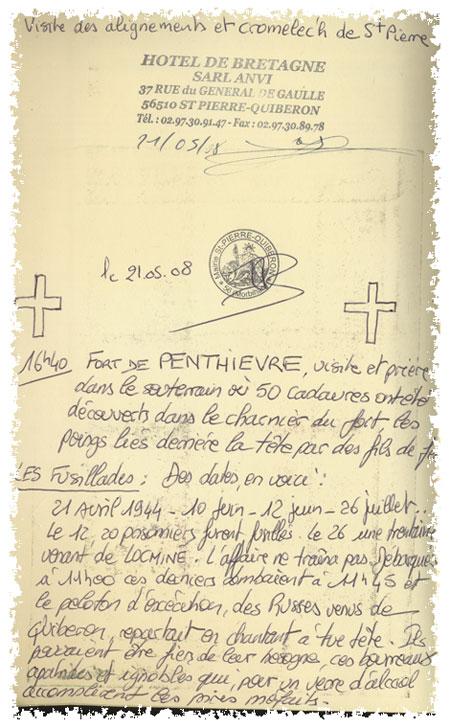 Visite des alignements et cromelec'h de St Pierre
HOTEL DE BRETAGNE
SARL ANVI
37 RUE du GENERAL DE GAULLE
56510 ST PIERRE-QUIBERON
Tél. : 02.97.30.91.47 - Fax : 02.97.30.89.78
21/05/08
le 21.05.08
Mairie St-PIERRE-QUIBERON
16h40 FORT DE PENTHIEVRE, visite et prière
dans le souterrain où 50 cadavres ont été
découverts dans le charnier du fort, les
poings liés derrière la tête par des fils de
LES Fusillades : Des dates, en voici :
21 Avril 1944 - 10 juin - 12 juin - 26 juillet...
Le 12, 20 prisonniers furent fusillés. Le 26 une trentaine
venant de LOCMINÉ. L'affaire ne traîna pas. Débarqués
à 11h00 ces derniers tombaient à 11h45 et
le peloton d'exécution, des Russes venus de
Quiberon, repartait en chantant à tue tête. Ils
pouvaient être fiers de leur besogne, ces bourreaux
et ignobles qui, pour un verre d'alcool
accomplirent les pires méfaits.